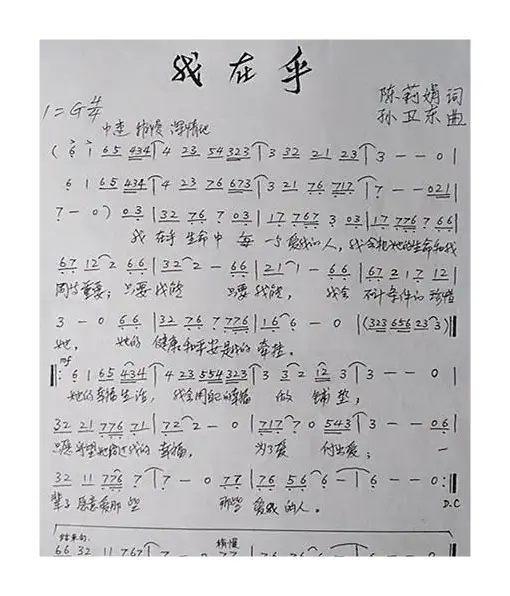 我在乎
陈莉娟 词
1=G 4/4
孙卫东 曲
中速 稍慢 深情地
( 6 1 65 434 | 4 23 54 323 | 3 32 21 23 | 3 - - 0 |
6 1 65 434 | 4 23 76 673 | 3 21 76 717 | 7 - - 021 |
7 - 0 ) 03 | 32 76 7 03 | 17 767 3 03 | 17 776 7 66 |
我 在乎 生命中 每 一个爱我的人, 我会把她的生命和我
67 12 2 66 | 32 2 - 66 | 21 1 - 66 | 67 21 7 12 |
同等重要; 只要我能 只要我能, 我会 不计条件的珍惜
3 - 0 66 | 32 76 7 776 | 16 6 - 0 | (323 656 23 3) ‖
她, 她的 健康和平安是我的牵挂.
mf
‖: 6 1 65 434 | 4 23 554 323 | 3 3 2 12 3 | 3 - - 0 |
她的幸福生活, 我会用自己的幸福 做 铺垫;
32 21 776 71 | 72 2 - 0 | 717 7 0 543 | 3 - - 06 |
只愿 幸福, 为了爱 付出爱; 一
32 11 776 7 | 7 - 0 77 | 76 56 6 - | 6 - - 0 :‖
辈子愿意爱那些 那些 爱我的人.
D.C
结束句
稍慢
66 32 11 767